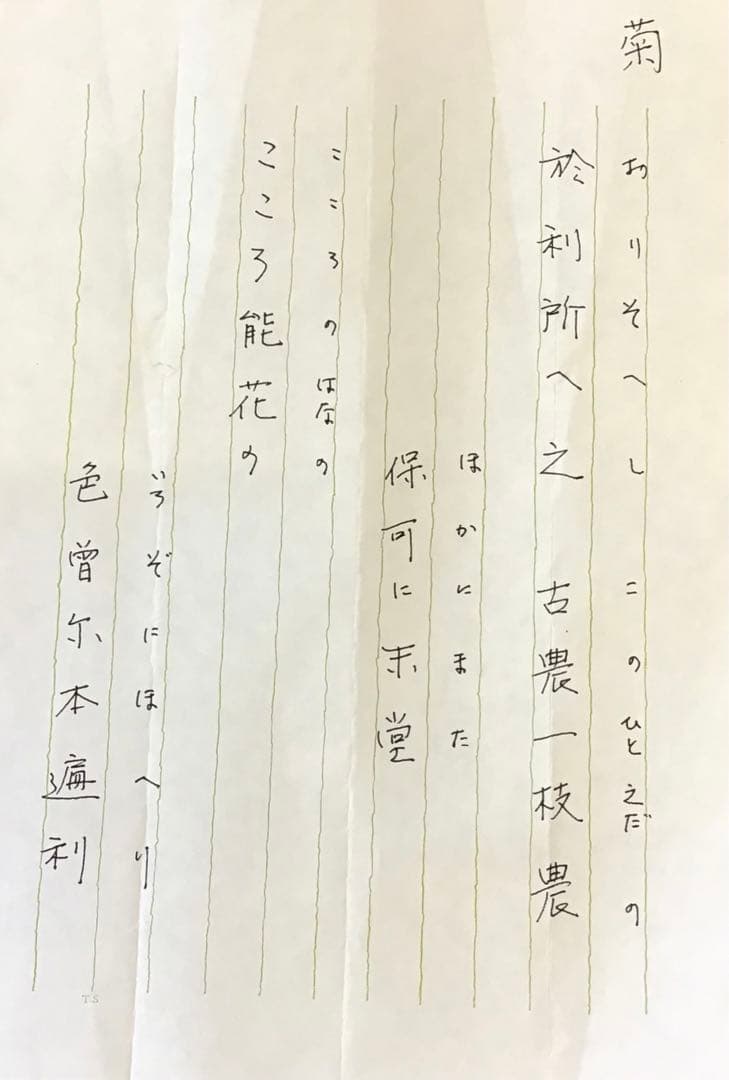 菊
おりそへし このひとえだの
於利所へ之 古農一枝農
ほかにまた
保可に末堂
こころのはなの
こころ能花の
いろぞにほへり
色曽尓本遍利
TS